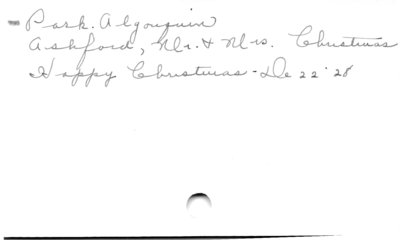 Park. Algonquin
Ashford, Mr. & Mrs. Christmas
Happy Christmas - De 22 '28